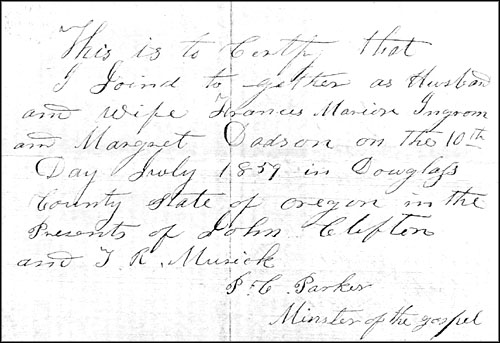 This is to Certfy that
I Joind to gether as Husband
and wife Frances Marion Ingrom
and Margret Dodson on the 10th
Day July 1859 in Douglass
County State of oregon in the
Presents of John Clifton
and T R. Musick
P. C. Parker
Minster of the gospel